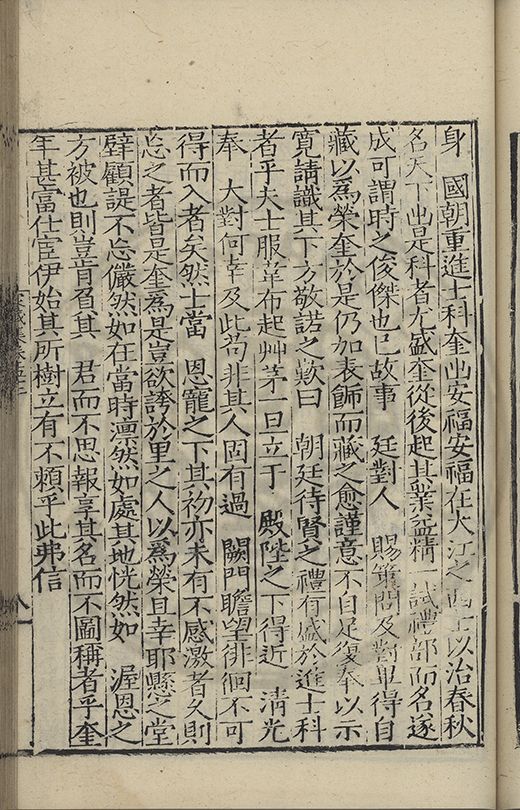 身　國朝重進士科奎出安福安福在大江之西士以治春秋
名天下出是科者尤盛奎從後起其業益精　試禮部而名遂
成可謂時之俊傑也已故事　廷對人　賜策問及對畢得自
藏以為榮奎於是仍加表飾而藏之愈謹意不自足復奉以示
寬請識其下方敬諾之歎曰　朝廷待賢之禮有盛於進士科
者乎夫士服韋布起艸茅一旦立于　殿陛之下得近　清光
奉　大對何幸及此苟非其人固有過　闕門瞻望徘徊不可
得而入者矣然士當　恩寵之下其初亦未有不感激者久則
忘之者皆是奎為是豈欲誇於里之人以為榮且幸耶懸之堂
壁顧諟不忘儼然如在當時凛然如處其地恍然如　渥恩之
方被也則豈肯負其　君而不思報享其名而不圖稱者乎奎
年甚富仕宦伊始其所樹立有不賴乎此弗信